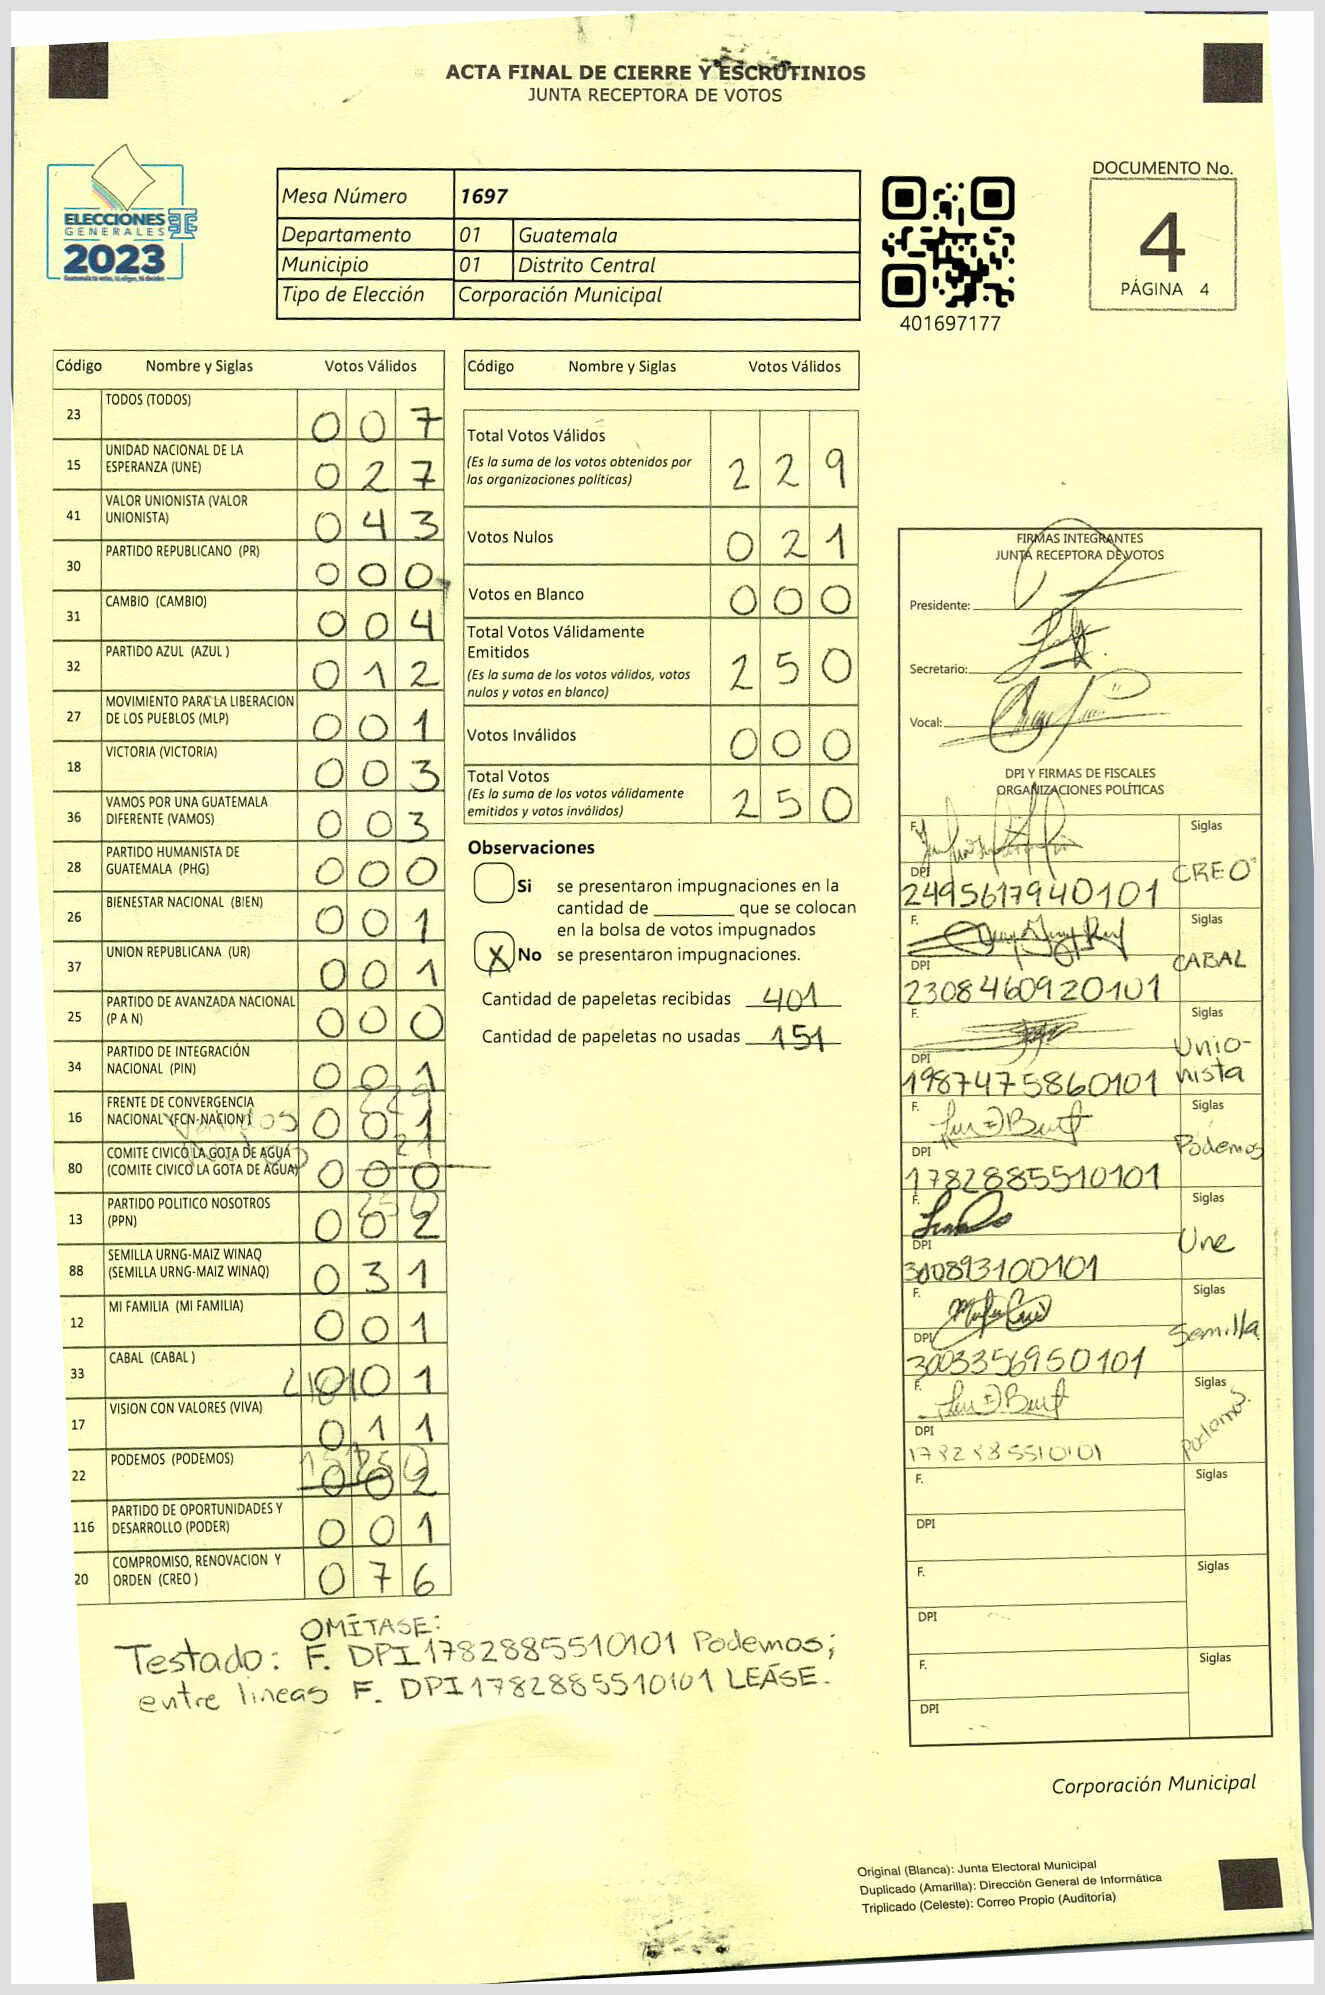 ACTA FINAL DE CIERRE Y ESCRUTINIOS
JUNTA RECEPTORA DE VOTOS
ELECCIONES
GENERALES
2023
Mesa Número 1697
Departamento 01 Guatemala
Municipio 01 Distrito Central
Tipo de Elección Corporación Municipal
401697177
DOCUMENTO No.
4
PÁGINA 4
Código Nombre y Siglas Votos Válidos
23 TODOS (TODOS) 007
15 UNIDAD NACIONAL DE LA
ESPERANZA (UNE) 027
41 VALOR UNIONISTA (VALOR
UNIONISTA) 043
30 PARTIDO REPUBLICANO (PR) 000
31 CAMBIO (CAMBIO) 004
32 PARTIDO AZUL (AZUL ) 012
27 MOVIMIENTO PARA LA LIBERACION
DE LOS PUEBLOS (MLP) 001
18 VICTORIA (VICTORIA) 003
36 VAMOS POR UNA GUATEMALA
DIFERENTE (VAMOS) 003
28 PARTIDO HUMANISTA DE
GUATEMALA (PHG) 000
26 BIENESTAR NACIONAL (BIEN) 001
37 UNION REPUBLICANA (UR) 001
25 PARTIDO DE AVANZADA NACIONAL
(P A N) 000
34 PARTIDO DE INTEGRACIÓN
NACIONAL (PIN) 001
16 FRENTE DE CONVERGENCIA
NACIONAL (FCN-NACION ) 001
80 COMITE CIVICO LA GOTA DE AGUA
(COMITE CIVICO LA GOTA DE AGUA) 000
13 PARTIDO POLITICO NOSOTROS
(PPN) 002
88 SEMILLA URNG-MAIZ WINAQ
(SEMILLA URNG-MAIZ WINAQ) 031
12 MI FAMILIA (MI FAMILIA) 001
33 CABAL (CABAL ) 001
17 VISION CON VALORES (VIVA) 011
22 PODEMOS (PODEMOS) 002
116 PARTIDO DE OPORTUNIDADES Y
DESARROLLO (PODER) 001
20 COMPROMISO, RENOVACION Y
ORDEN (CREO ) 076
Código Nombre y Siglas Votos Válidos
Total Votos Válidos
(Es la suma de los votos obtenidos por
las organizaciones políticas) 229
Votos Nulos 021
Votos en Blanco 000
Total Votos Válidamente
Emitidos
(Es la suma de los votos válidos, votos
nulos y votos en blanco) 250
Votos Inválidos 000
Total Votos
(Es la suma de los votos válidamente
emitidos y votos inválidos) 250
Observaciones
Si se presentaron impugnaciones en la
cantidad de ________ que se colocan
en la bolsa de votos impugnados
X No se presentaron impugnaciones.
Cantidad de papeletas recibidas 401
Cantidad de papeletas no usadas 151
FIRMAS INTEGRANTES
JUNTA RECEPTORA DE VOTOS
Presidente:
Secretario:
Vocal:
DPI Y FIRMAS DE FISCALES
ORGANIZACIONES POLÍTICAS
F. Siglas
DPI CREO
2495617940101
F. Siglas
DPI CABAL
2308460920101
F. Siglas
DPI Unio-
1987475860101 nista
F. Siglas
DPI Podemos
1782885510101
F. Siglas
DPI Une
300893100101
F. Siglas
DPI Semilla
3003356950101
F. Siglas
DPI Podemos
1782885510101
F. Siglas
DPI
F. Siglas
DPI
F. Siglas
DPI
OMÍTASE:
Testado: F. DPI 1782885510101 Podemos;
entre lineas F. DPI 1782885510101 LEÁSE.
Corporación Municipal
Original (Blanca): Junta Electoral Municipal
Duplicado (Amarilla): Dirección General de Informática
Triplicado (Celeste): Correo Propio (Auditoría)